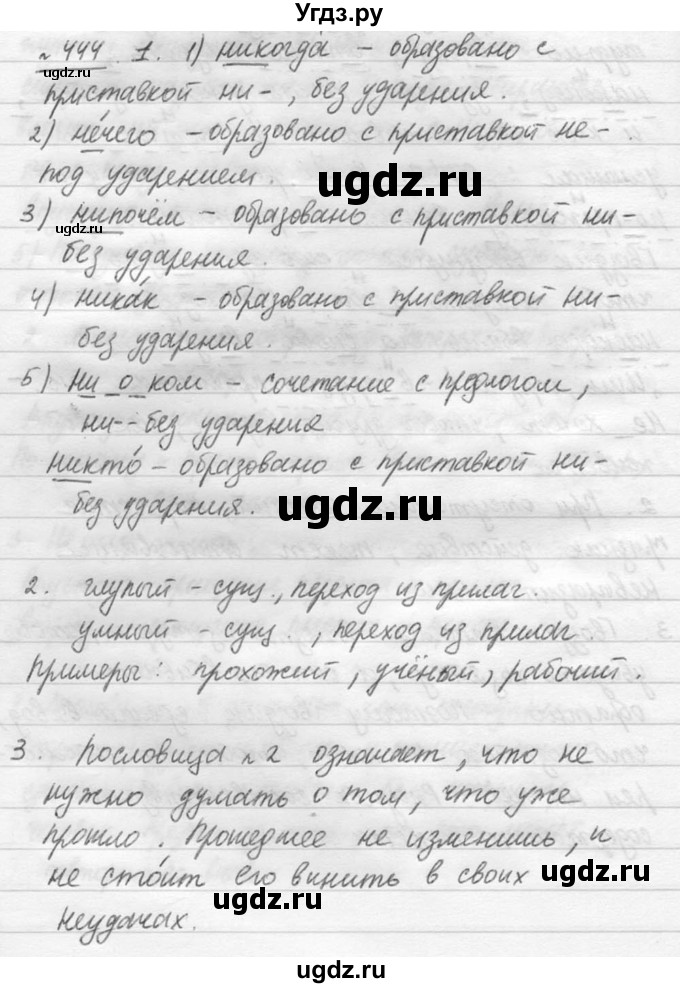 Угдз.ру
№ 444. 1. 1) никогда́ – образовано с
ugdz.ru
приставкой ни-, без ударения.
2) не́чего – образовано с приставкой не-
под ударением.
ugdz.ru
3) нипочём – образовано с приставкой ни-
ugdz.ru
без ударения.
4) ника́к – образовано с приставкой ни-
без ударения.
5) ни о ком – сочетание с предлогом,
ни-- без ударения
никто́ – образовано с приставкой ни-
без ударения.
ugdz.ru
2. глупый – сущ., переход из прилаг.
умный – сущ., переход из прилаг.
Примеры: прохожий, учёный, рабочий.
3. Пословица №2 означает, что не
нужно думать о том, что уже
прошло. Прошедшее не изменишь, и
не сто́ит его винить в своих
ugdz.ru
ugdz.ru
неудачах.
ugdz.ru